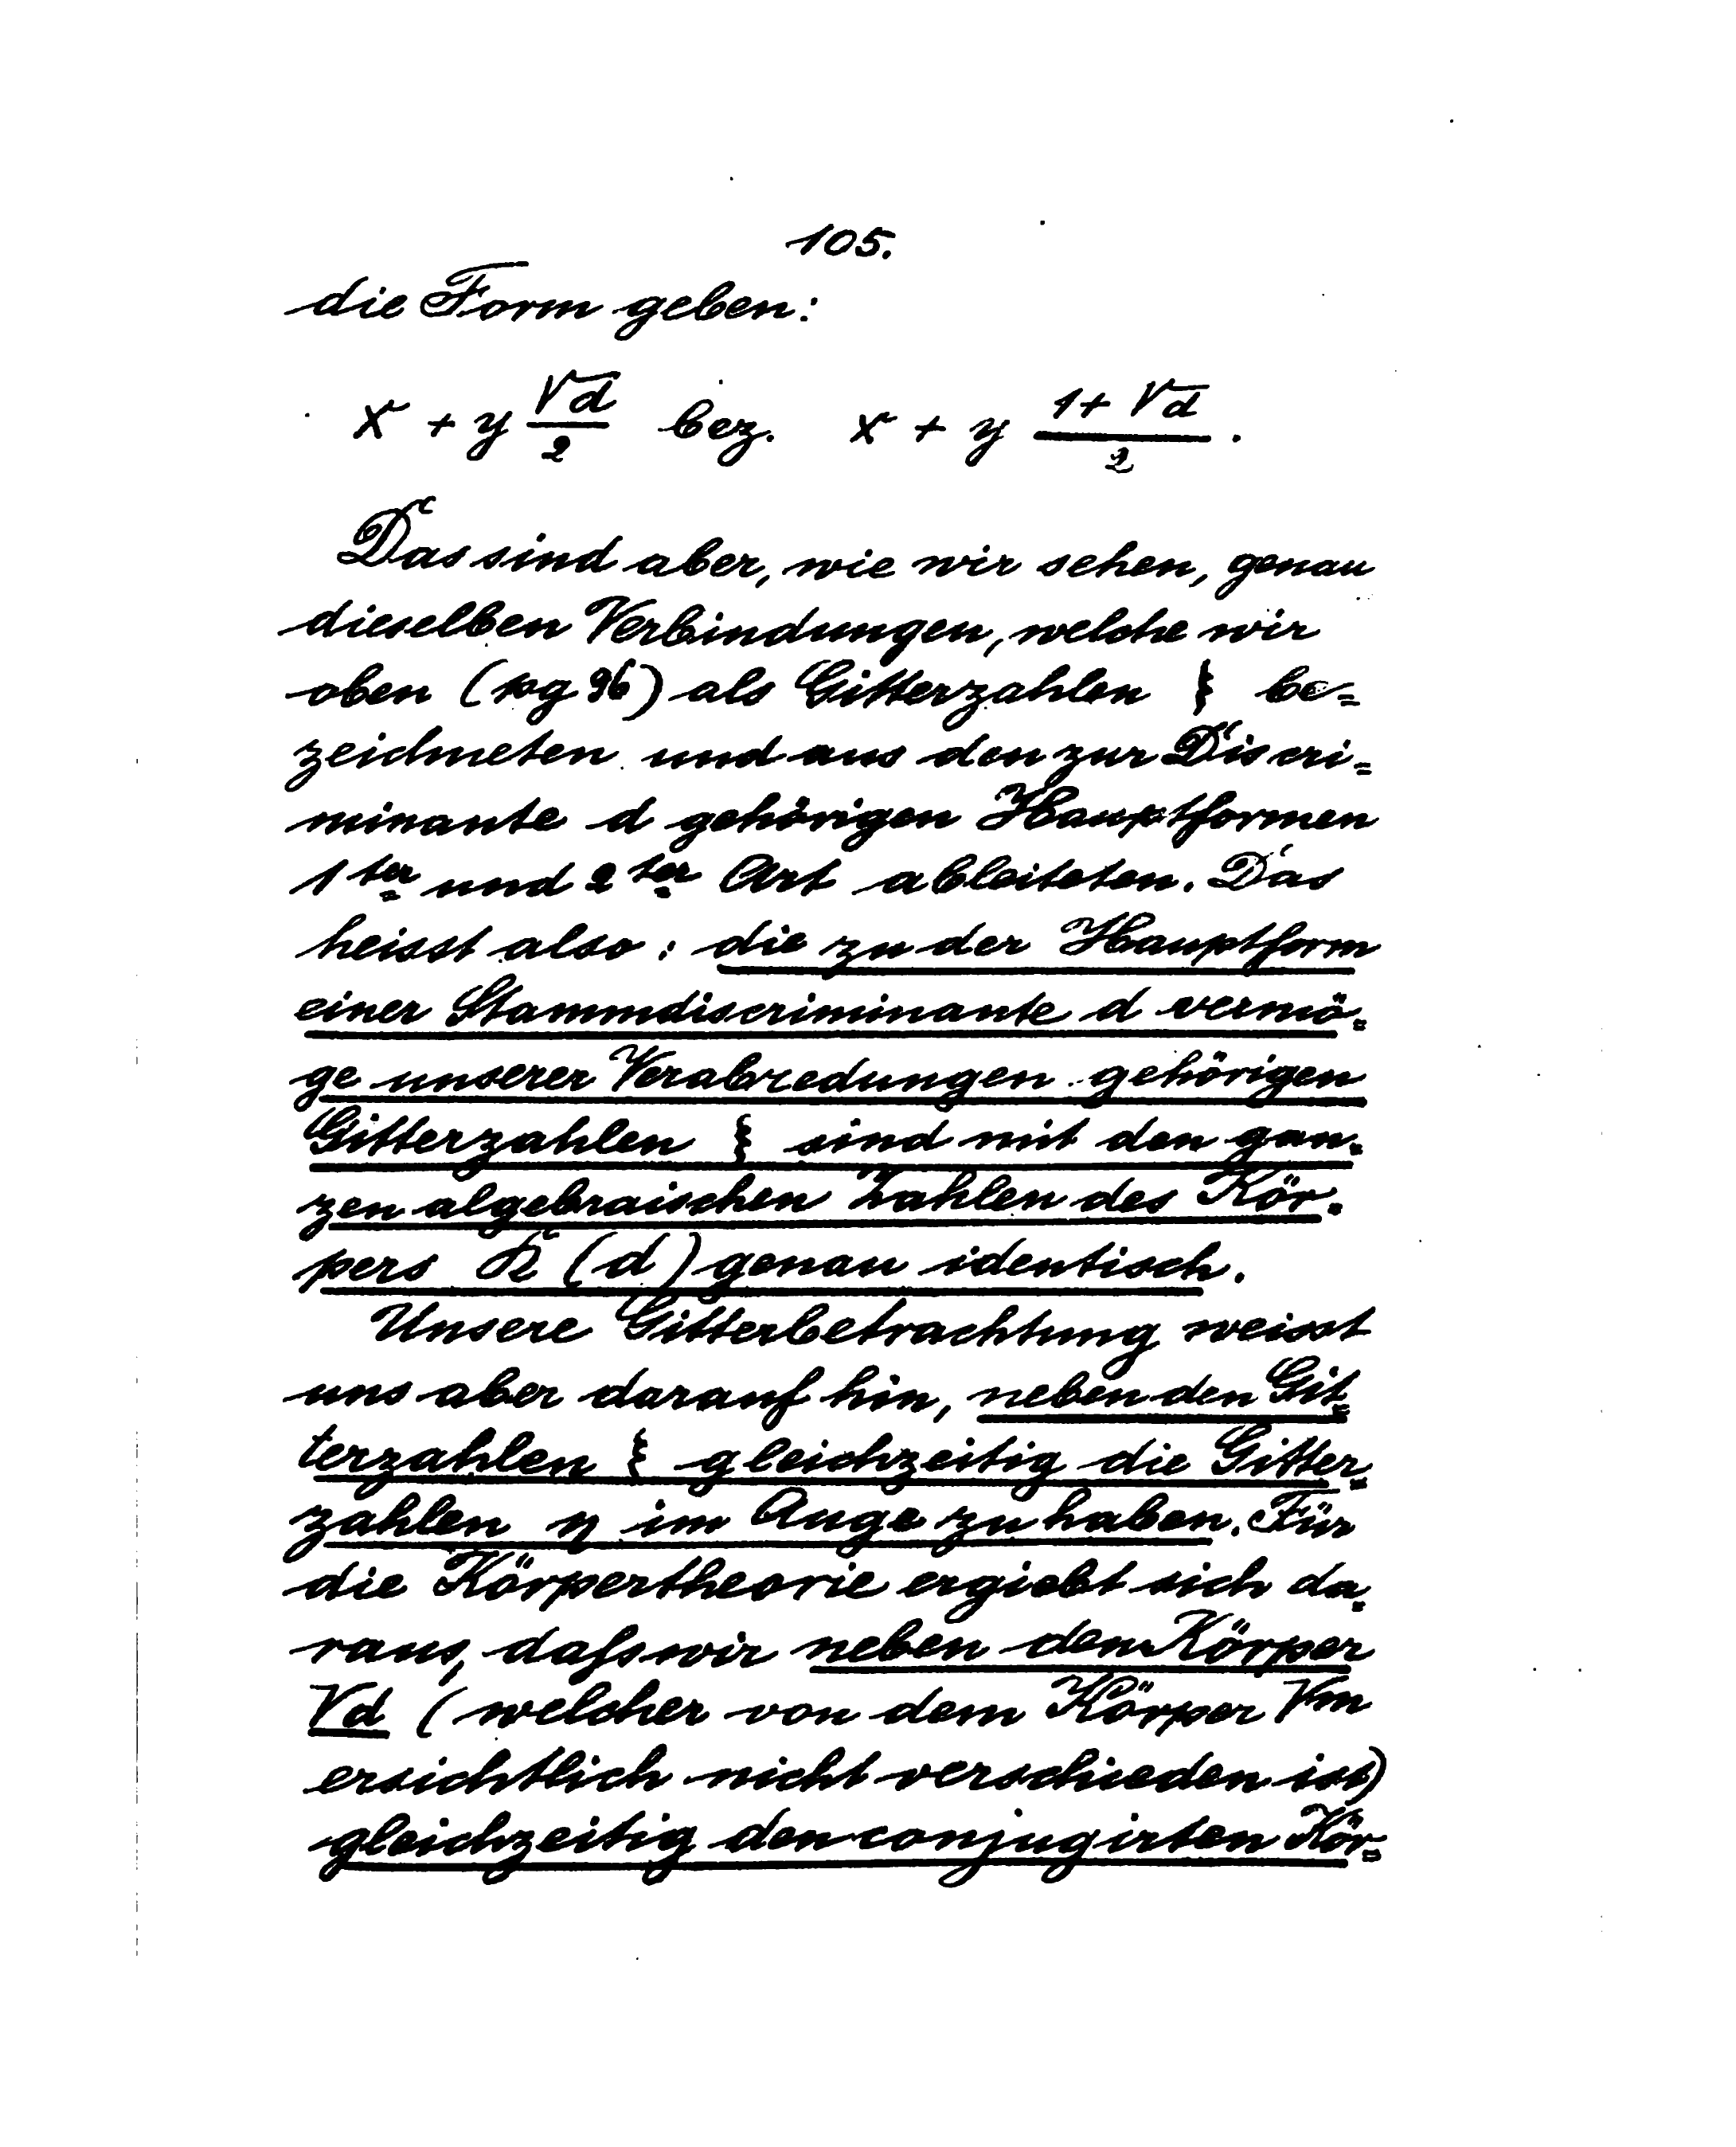 105.
die Form geben:
x + y √d/2 bez. x + y (1+√d)/2 .
Das sind aber, wie wir sehen, genau
dieselben Verbindungen, welche wir
oben (pg 96) als Gitterzahlen ξ be=
zeichneten und aus den zur Discri=
minante d gehörigen Hauptformen
1ter und 2ter Art ableiteten. Das
heisst also: die zu der Hauptform
einer Stammdiscriminante d vermö=
ge unserer Verabredungen gehörigen
Gitterzahlen ξ sind mit den gan=
zen algebraischen Zahlen des Kör=
pers K (d) genau identisch.
Unsere Gitterbetrachtung weisst
uns aber darauf hin, neben den Git=
terzahlen ξ gleichzeitig die Gitter=
zahlen η im Auge zu haben. Für
die Körpertheorie ergiebt sich da=
raus, dass wir neben dem Körper
√d (welcher von dem Körper √m
ersichtlich nicht verschieden ist)
gleichzeitig den conjugirten Kör=